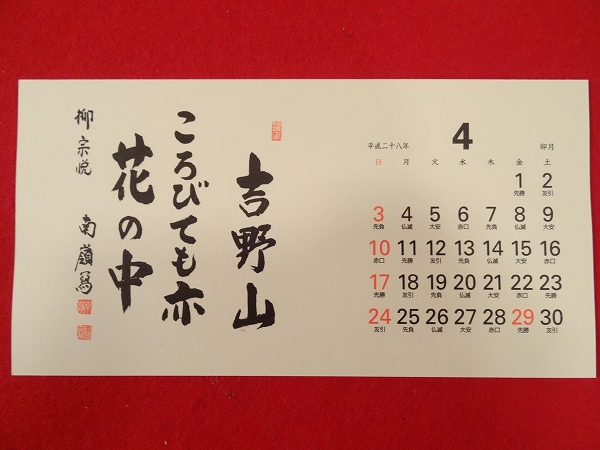 吉野山
ころびても亦
花の中
柳宗悦
南嶺寫
平成二十八年 4 卯月
日 月 火 水 木 金 土
1 2
先勝 友引
3 4 5 6 7 8 9
先負 仏滅 大安 赤口 先負 仏滅 大安
10 11 12 13 14 15 16
赤口 先勝 友引 先負 仏滅 大安 赤口
17 18 19 20 21 22 23
先勝 友引 先負 仏滅 大安 赤口 先勝
24 25 26 27 28 29 30
友引 先負 仏滅 大安 赤口 先勝 友引